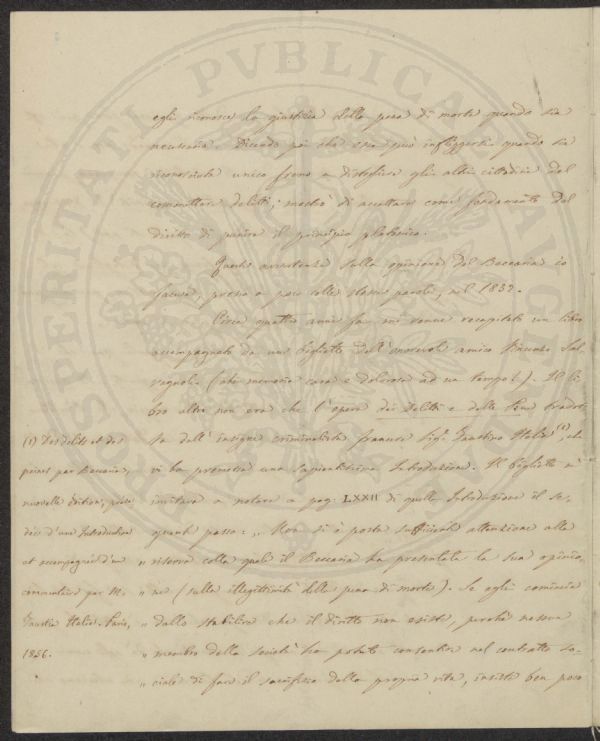 egli riconosce la giustizia della pena di morte quando sia
necessaria. Dicendo poi che essa può infliggersi quando sia
riconosciuta unico freno a distogliere gli altri cittadini dal
commettere delitti, mostrò di accettare come fondamento del
diritto di punire il principio platonico.
Queste avvertenze sulla opinione del Beccaria io
faceva, presso a poco colle stesse parole, nel 1832.
Circa quattro anni fa mi venne recapitato un libro
accompagnato da un biglietto dell'onorevole amico Vincenzo Sal-
vagnoli (ahi memoria cara e dolorosa ad un tempo!). Il li-
bro altro non era che l'opera dei Delitti e delle Pene tradot-
ta dall'insigne criminalista francese Sigr. Faustino Hélie (1), che
vi ha premessa una sapientissima Introduzione. Il biglietto m'
invitava a notare a pag. LXXII di quella Introduzione il se-
guente passo: „ Non si è posta sufficiente attenzione alla
„ riserva colla quale il Beccaria ha presentata la sua opinio-
„ ne (sulla illegittimità della pena di morte). Se egli comincia
„ dallo stabilire che il diritto non esiste, perchè nessun
„ membro della società ha potuto consentire nel contratto so-
„ ciale di fare il sacrifizio della propria vita, insiste ben poco
(1) Des delits et des
peines par Beccaria,
nouvelle édition, précé-
dée d'une Introduction
et accompagnée d'un
commentaire par M.
Faustin Hélie. Paris,
1856.
PROSPERITATI PVBLICAE AVGENDAE